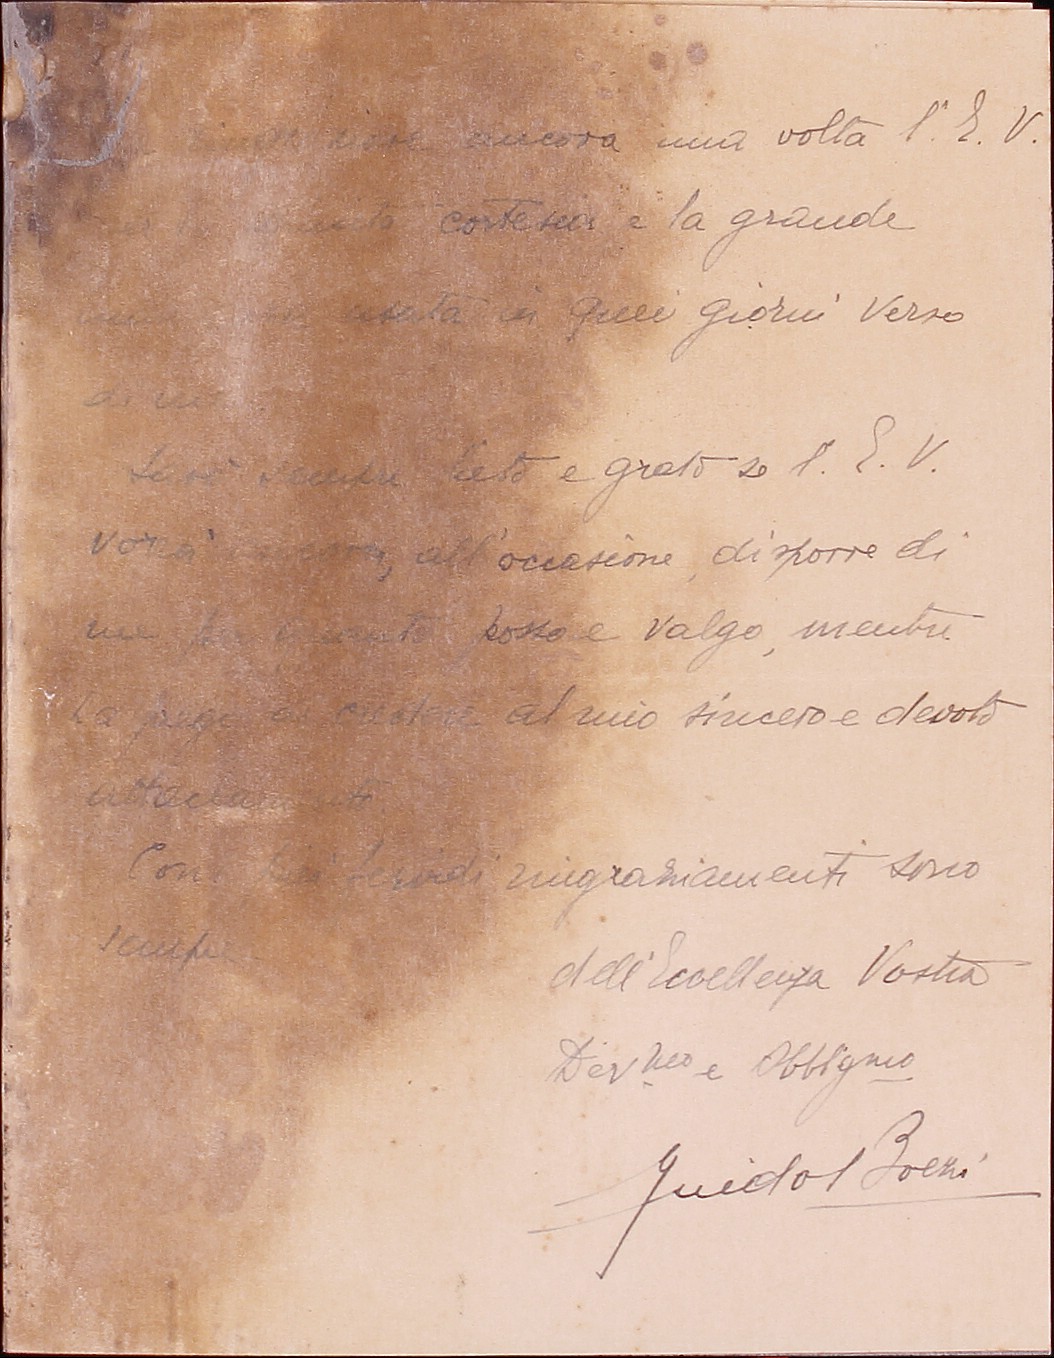 ancora una volta l'E. V.
cortesia e la grande
usata in quei giorni verso
di me
Sarò sempre lieto e grato se l'E. V.
vorrà all'occasione, disporre di
me per quanto posso e valgo, mentre
La prego di credere al mio sincero e devoto
attaccamento
Con i più fervidi ringraziamenti sono
sempre
dell'Eccellenza Vostra
Dev.mo e Obbligmo
Guido